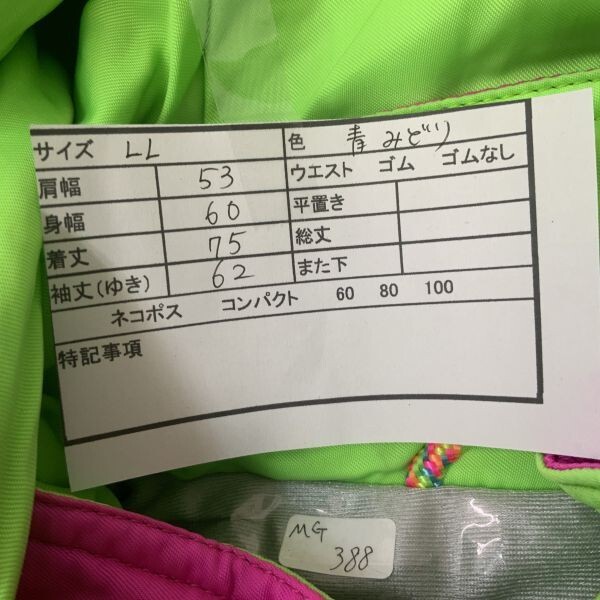 サイズ LL 色 青 みどり
肩幅 53 ウエスト ゴム ゴムなし
身幅 60 平置き
着丈 75 総丈
袖丈(ゆき) 62 また下
ネコポス コンパクト 60 80 100
特記事項
MG
388